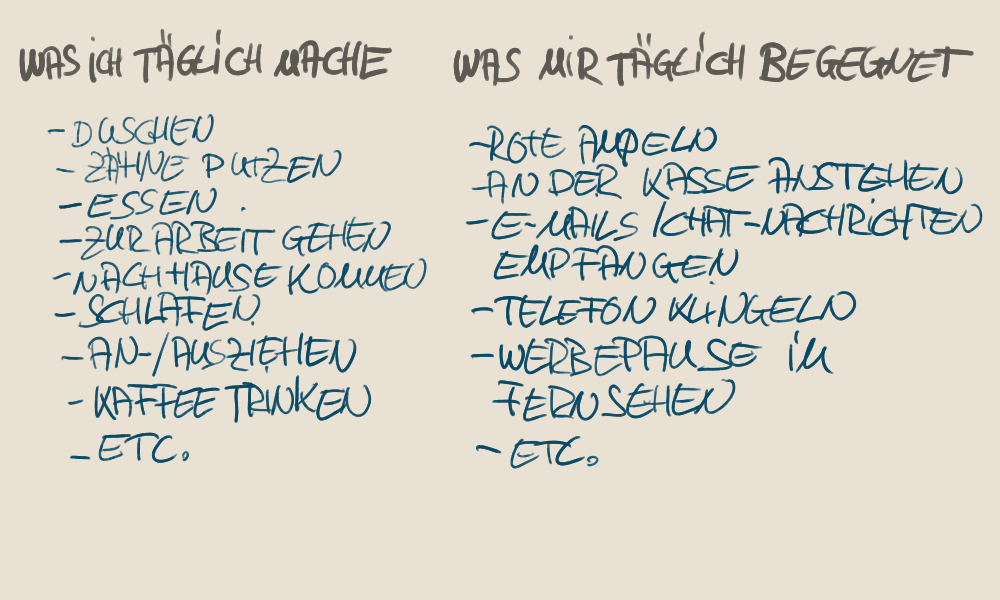 WAS ICH TÄGLICH MACHE
- DUSCHEN
- ZÄHNE PUTZEN
- ESSEN
- ZUR ARBEIT GEHEN
- NACH HAUSE KOMMEN
- SCHLAFEN
- AN-/AUSZIEHEN
- KAFFEE TRINKEN
- ETC.
WAS MIR TÄGLICH BEGEGNET
- ROTE AMPELN
- AN DER KASSE ANSTEHEN
- E-MAILS / CHAT-NACHRICHTEN
EMPFANGEN
- TELEFON KLINGELN
- WERBEPAUSE IM
FERNSEHEN
- ETC.